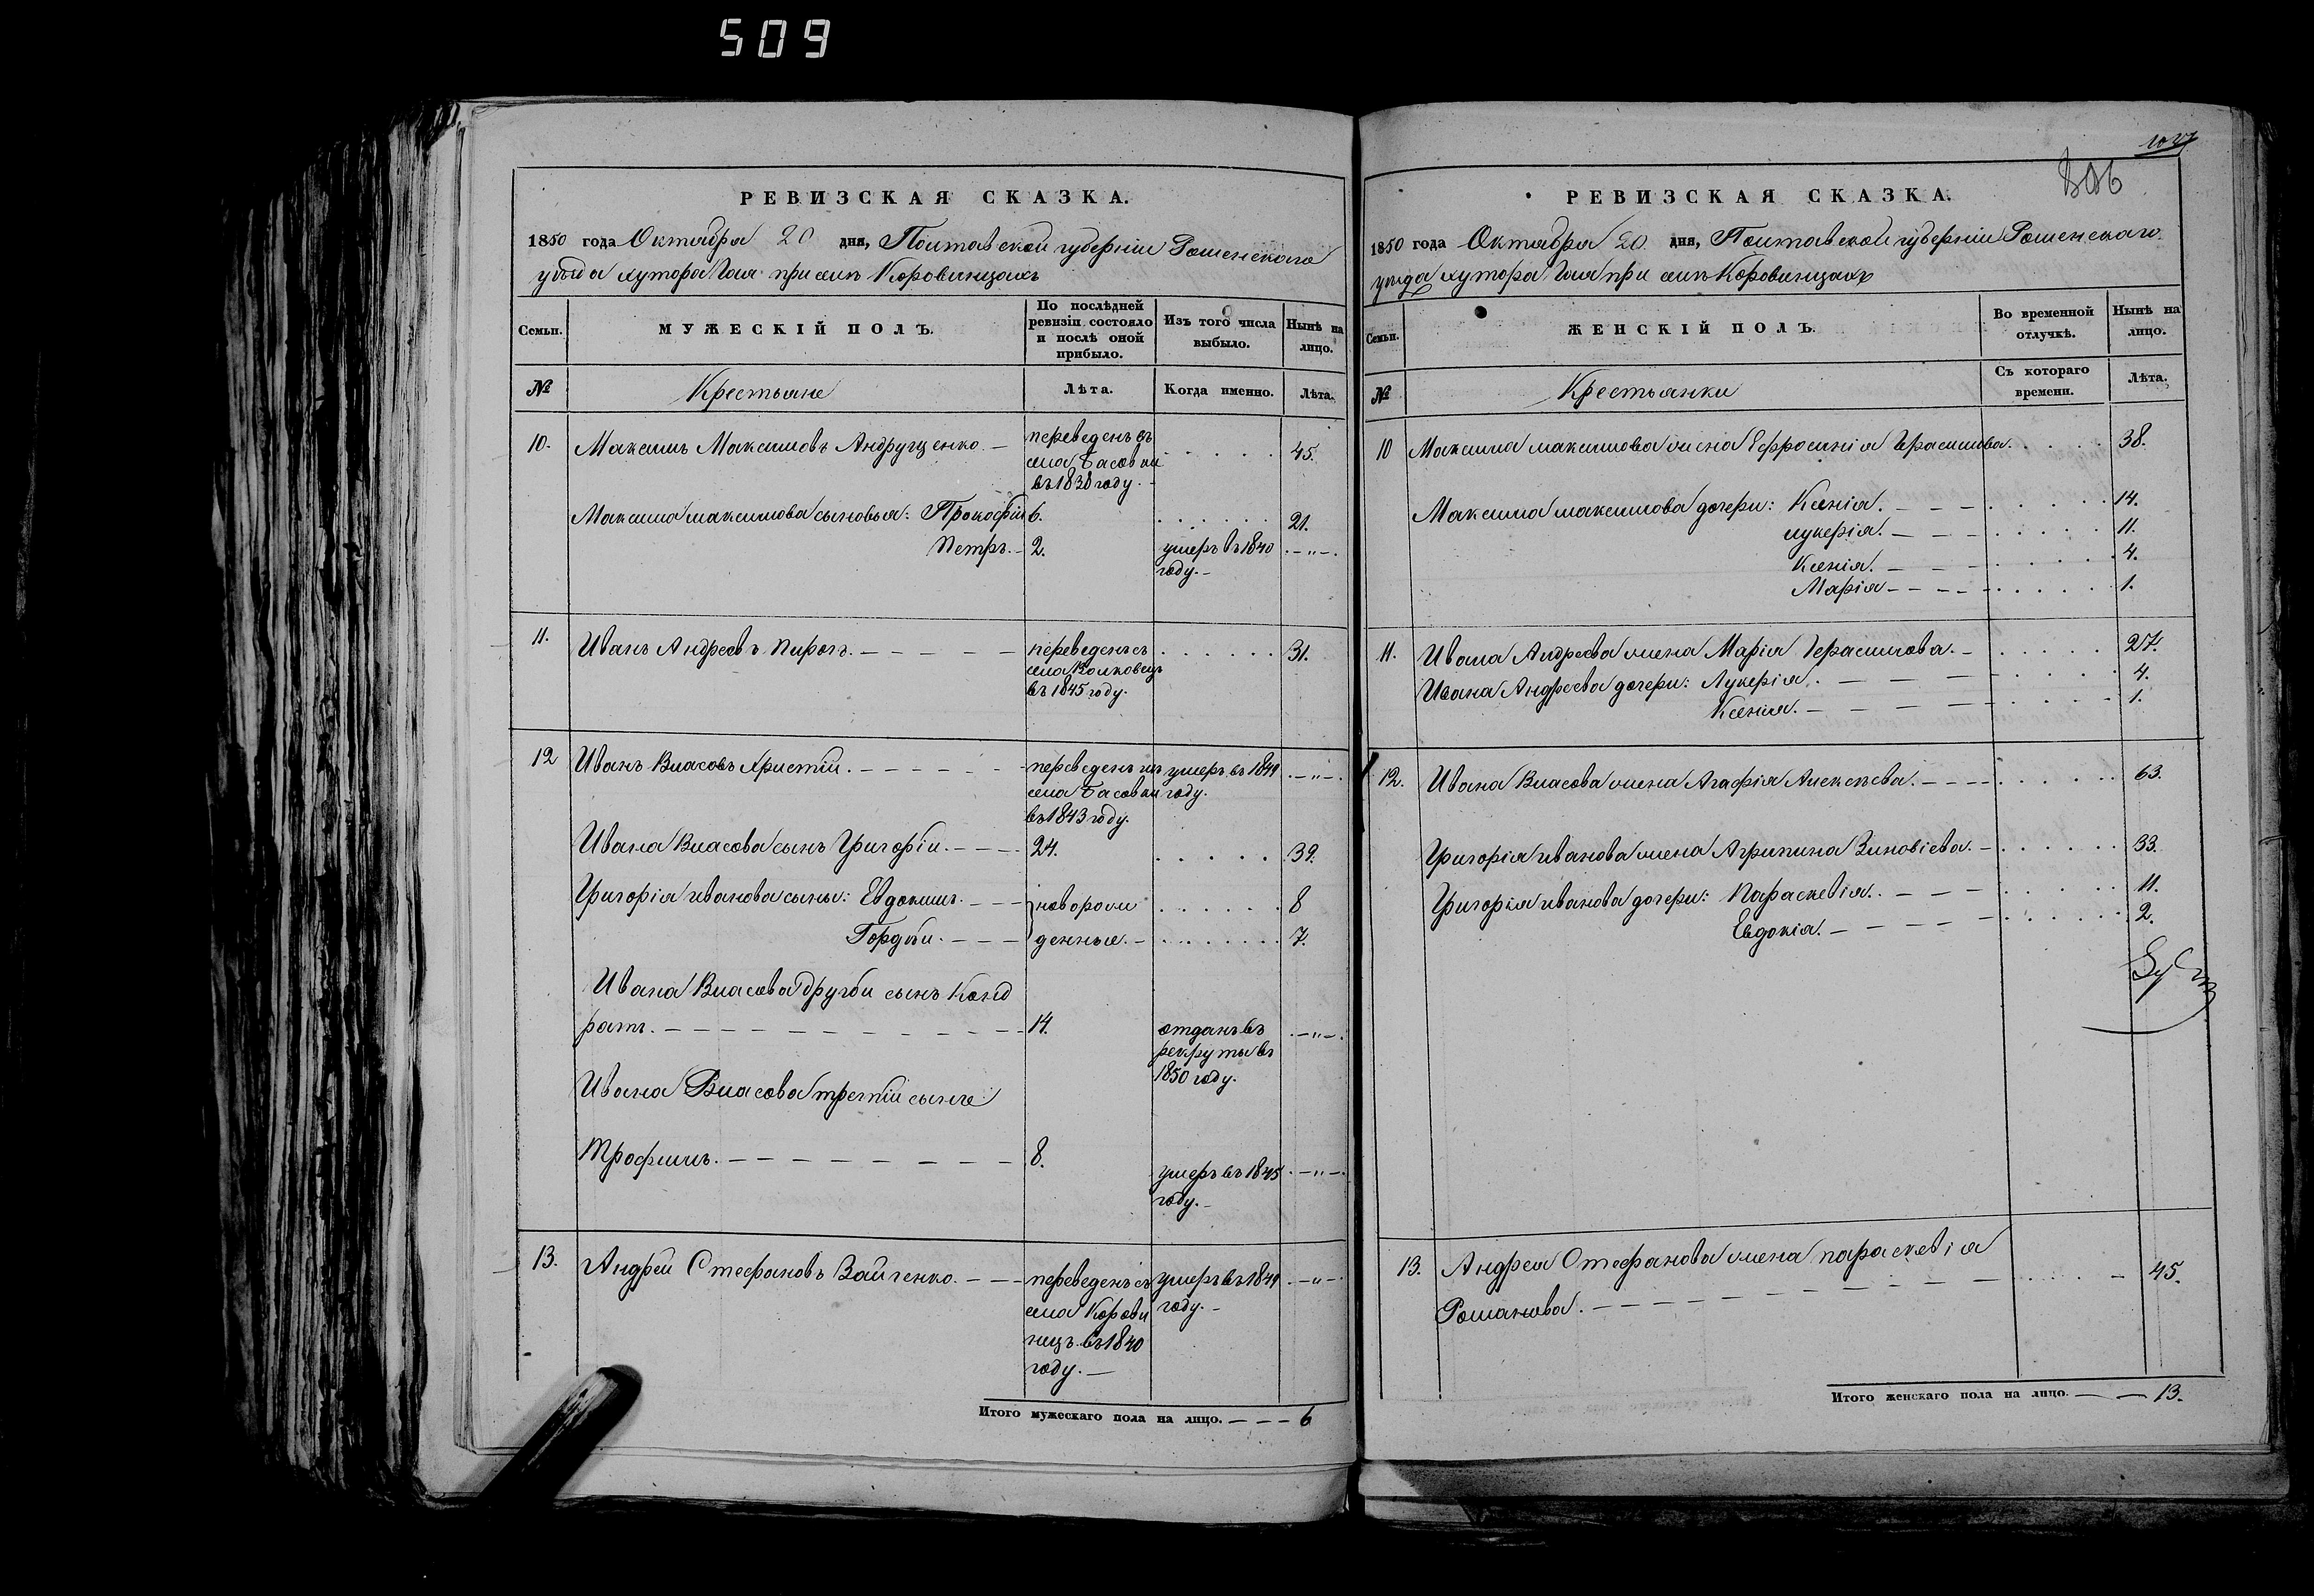 509
РЕВИЗСКАЯ СКАЗКА.
1850 года Октября 20 дня, Полтавской губерніи Роменскаго
уѣзда хутора Гая при селѣ Коровинцахъ
Семьи.
МУЖЕСКІЙ ПОЛЪ.
По послѣдней ревизіи состояло и послѣ оной прибыло.
Изъ того числа выбыло.
Нынѣ на лицо.
№
Крестьяне
Лѣта.
Когда именно.
Лѣта.
10. Максимъ Максимовъ Андрущенко. — переведенъ въ 45.
села Басовки
въ 1838 году. -
Максима максимова сыновья: Прокофій 6. 21.
Петръ. - 2. умеръ въ 1840 . - " - .
году. -
11. Иванъ Андреевъ Пирогъ. — — — — — переведенъ съ 31.
села Волковецъ
въ 1845 году.
12 Иванъ Власовъ Христій. — — — — — переведенъ изъ умеръ въ 1849 . - " - .
села Басовки году.
въ 1843 году.
Ивана Власова сынъ Григорій. — — — 24. 39.
Григорія иванова сыны: Евдокимъ. — — новорож 8
Гордѣй. — — — денные. — 7.
Ивана Власова другій сынъ Конд
ратъ. — — — — — — — — — 14. отданъ въ . - " - .
рекруты въ
1850 году.
Ивана Власова третій сынъ
Трофимъ. — — — — — — — — 8.
умеръ въ 1845 . - " - .
году. -
13. Андрей Стефановъ Зайченко. — — — переведенъ съ умеръ въ 1849 . - " - .
села Корови году. -
нецъ въ 1840
году. —
Итого мужескаго пола на лицо. — — — 6
РЕВИЗСКАЯ СКАЗКА.
1850 года Октября 20 дня, Полтавской губерніи Роменскаго
уѣзда хутора Гая при селѣ Коровинцахъ
Семьи.
ЖЕНСКІЙ ПОЛЪ.
Во временной отлучкѣ.
Нынѣ на лицо.
№
Крестьянки
Съ котораго времени.
Лѣта.
10 Максима максимова жена Ефросинія Герасимова. 38.
Максима максимова дочери: Ксенія. — — — 14.
лукерія. — — — 11.
Ксенія. — — — 4.
Марія — — — — 1.
11. Ивана Андреева жена Марія Герасимова. — 27.
Ивана Андреева дочери: Лукерія. — — — 4.
Ксенія. — — — — 1.
12. Ивана Власова жена Агафія Алексѣева. — — — 63.
Григорія иванова жена Агрипина Зиновіева. — 33.
Григорія иванова дочери: Параскевія. — — — 11.
Евдокія. — — — — 2.
13. Андрея Стефанова жена параскевія
Романова. — — — — — — — — 45.
Итого женскаго пола на лицо. — — 13.